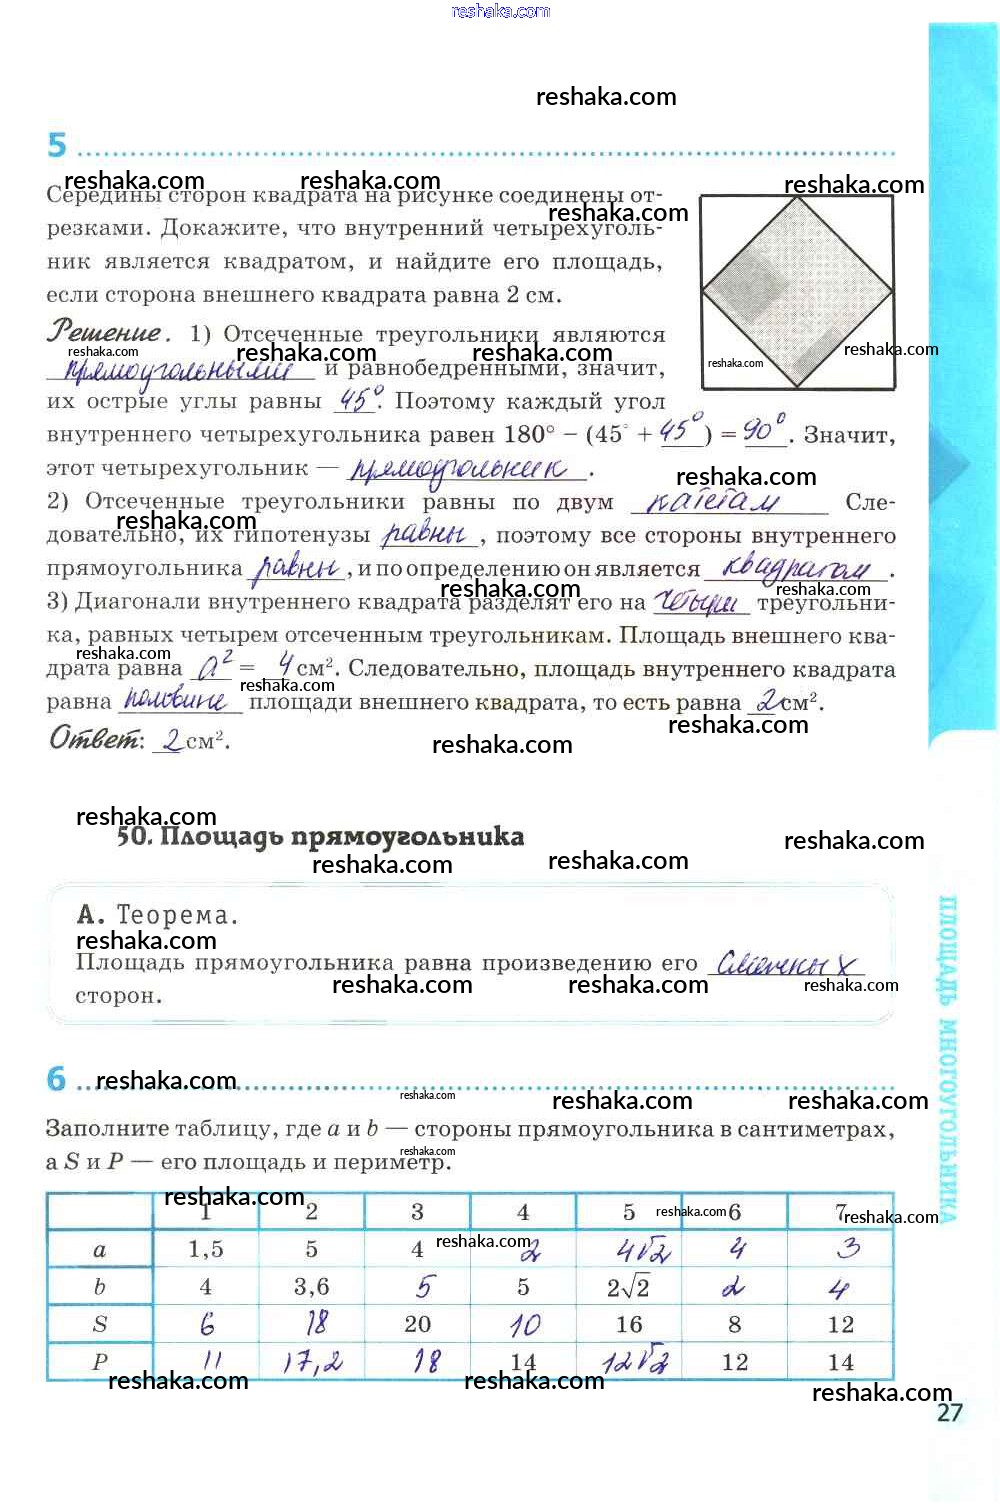 reshaka.com
reshaka.com
5
reshaka.com reshaka.com reshaka.com
Середины сторон квадрата на рисунке соединены от-
reshaka.com
резками. Докажите, что внутренний четырёхуголь-
ник является квадратом, и найдите его площадь,
если сторона внешнего квадрата равна 2 см.
Решение. 1) Отсеченные треугольники являются
reshaka.com reshaka.com reshaka.com reshaka.com
reshaka.com
прямоугольными и равнобедренными, значит,
их острые углы равны 45°. Поэтому каждый угол
внутреннего четырехугольника равен 180° − (45° + 45°) = 90°. Значит,
этот четырехугольник — прямоугольник.
reshaka.com
2) Отсеченные треугольники равны по двум катетам Сле-
reshaka.com
довательно, их гипотенузы равны, поэтому все стороны внутреннего
прямоугольника равны, и по определению он является квадратом.
reshaka.com reshaka.com
3) Диагонали внутреннего квадрата разделят его на четыре треугольни-
ка, равных четырем отсеченным треугольникам. Площадь внешнего ква-
reshaka.com
драта равна a² = 4 см². Следовательно, площадь внутреннего квадрата
reshaka.com
равна половине площади внешнего квадрата, то есть равна 2 см².
reshaka.com
Ответ: 2 см².
reshaka.com
reshaka.com
50. Площадь прямоугольника
reshaka.com reshaka.com reshaka.com
А. Теорема.
reshaka.com
Площадь прямоугольника равна произведению его смежных
reshaka.com reshaka.com reshaka.com
сторон.
6
reshaka.com
reshaka.com reshaka.com reshaka.com
Заполните таблицу, где a и b — стороны прямоугольника в сантиметрах,
reshaka.com
а S и P — его площадь и периметр.
reshaka.com
1 2 3 4 5 6 7
reshaka.com reshaka.com
reshaka.com
a 1,5 5 4 2 4√2 4 3
b 4 3,6 5 5 2√2 2 4
S 6 18 20 10 16 8 12
P 11 17,2 18 14 12√2 12 14
reshaka.com reshaka.com reshaka.com
ПЛОЩАДЬ МНОГОУГОЛЬНИКА
27